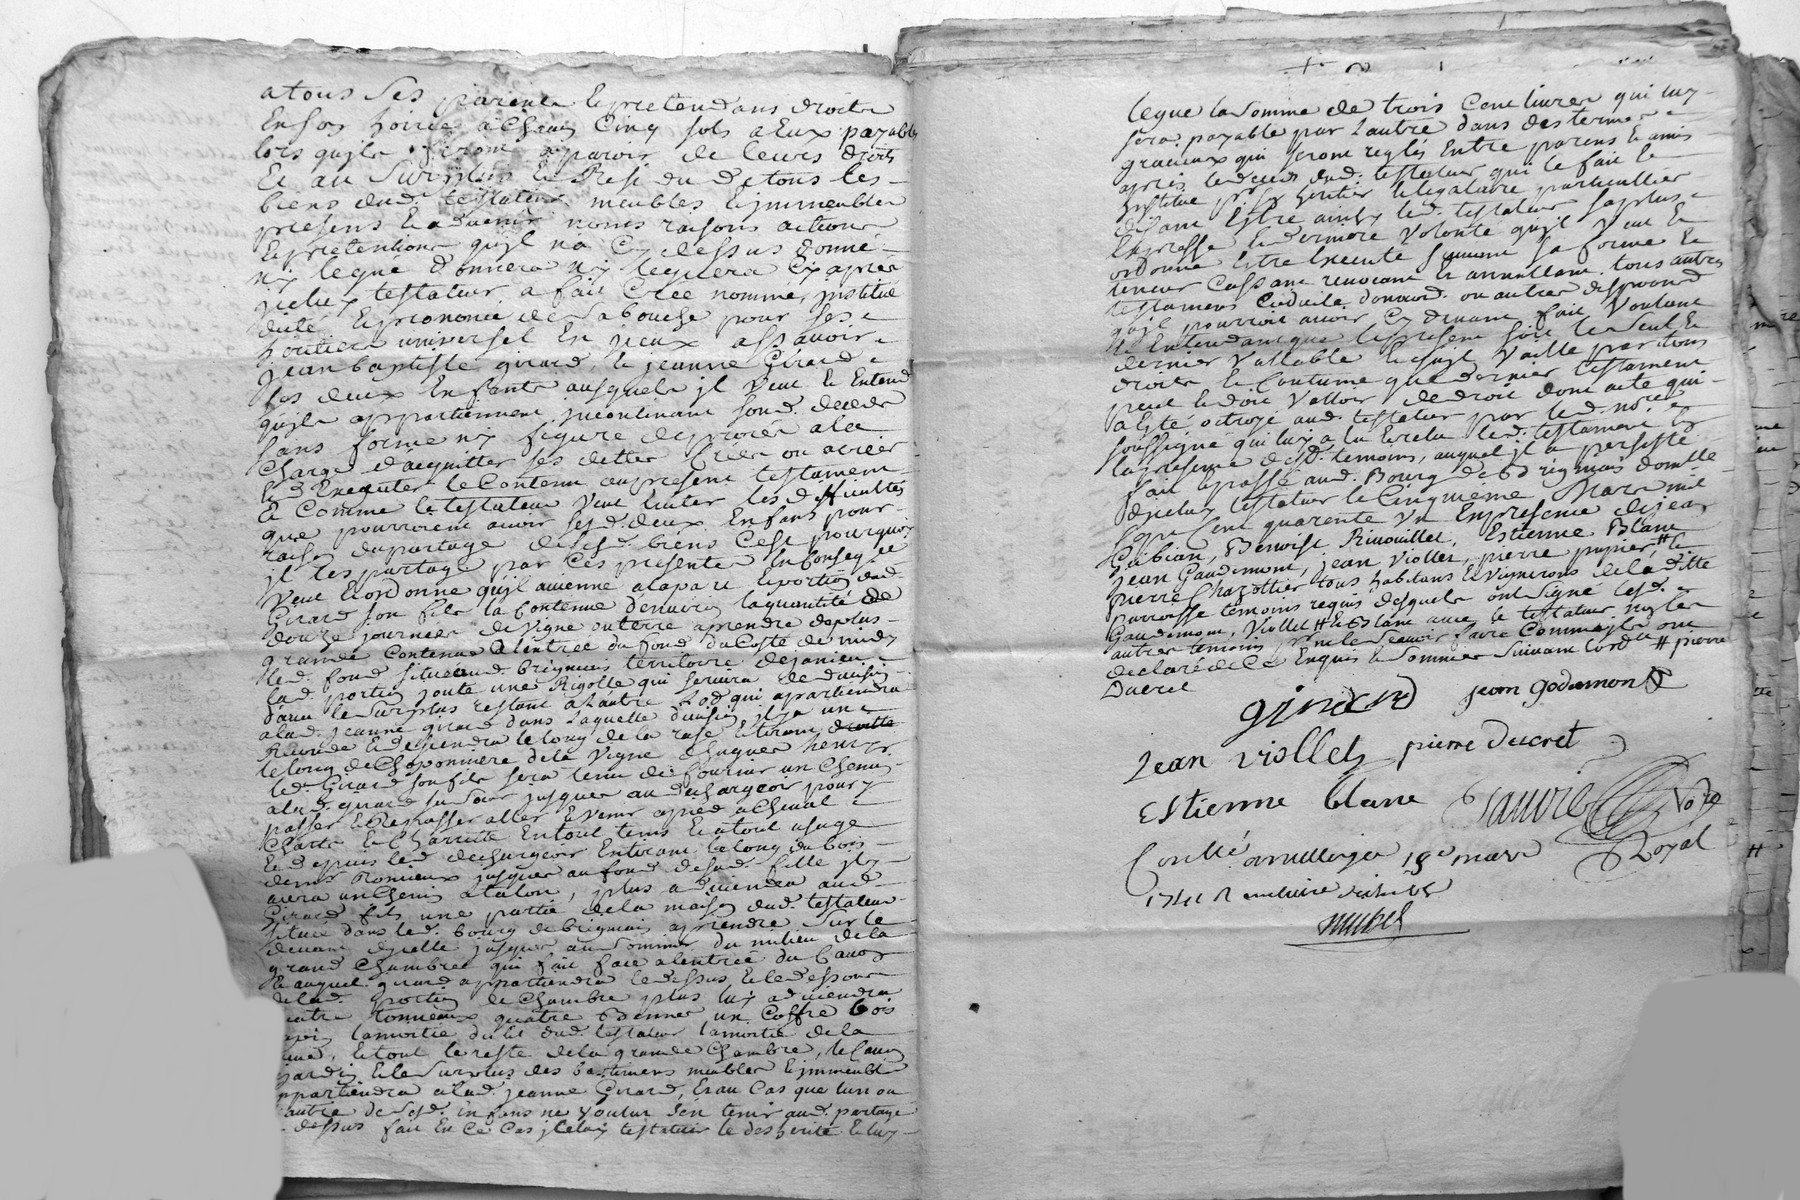 a tous ses parents & pretendans droits
En son hoirie a chacun Cinq sols a Eux payables
lors quils feront aparoir de leurs droits
Et au Surplus & Residu de tous les
biens dud. testateur meubles & immeubles
presens & advenir noms raisons actions
& pretentions quil na Cy dessus donné
ny legué donnera ny leguera Cy aprés
jceluy testateur a fait Créé nommé, institué
dicté & prononcé de sa bouche pour ses
héritiers universel En jceux assavoir
Jean baptiste girard, & jeanne Girard
ses deux Enfants ausquels jl Veut & Entend
quils appartiennent jncontinant son d. deceds
sans forme ny figure de procés a la
Charge d'acquitter ses dettes Créés ou a créer
& d'Executer le Contenu au present testament
Et Comme le testateur Veut Eviter les difficultés
que pourroient avoir sesd. deux Enfans pour
raison du partage de sesd. biens C'est pourquoy
jl les partage par Ces presentes En Conseq.ce
Veut & ordonne quil avienne a la part & portion dud.
Girard son fils la Contenue d'environ la quantité de
douze journées de Vigne ou terre a prendre de plus
grande Contenue a l'entrée du fond du Costé de midy
led. fond situé aud. brignais territoire de janicu
lad. portion joute une Rigolle qui servira de division
d'avec le Surplus restant a l'autre lod qui apartiendra
a lad. jeanne girard dans laquelle division il y a un
& descendra le long de la rase & tirant
le long de Chaponniere de la Vigne
led. Girard son fils sera tenu de fournir un Chemin
a lad. girard sa soeur jusques au dechargeoir pour y
passer & Repasser aller & venir a pied a Cheval
Charte & Charrette En tout tems & a tout usage
& depuis led. dechargeoir En tirant le long du bois
de mr Romieux jusques au fond de sad. fille jl y
aura un Chemin a talon, plus adviendra aud.
Girard fils une partie de la maison dud. testateur
situeé dans led. bourg de brignais a prendre sur le
devant d'ycelle jusques au Sommier du milieu de la
grand Chambre qui fait face a l'entrée du Cavot
& auquel girard appartiendra le dessus & le dessous
de lad. portion de Chambre plus luy adviendra
quatre tonneaux quatre bennes un Coffre bois
sapin la moitié du lit dud. testateur la moitié de la
& tout le reste de la grande Chambre, le Cavot
jardin & le Surplus des bastimens meubles & jmmeubles
appartiendra a lad. jeanne Girard, Et au Cas que lun ou
l'autre de sesd. Enfans ne Voulut s'en tenir aud. partage
Cy dessus fait En Ce Cas jceluy testateur le desherite & luy
legue la somme de trois Cent livres qui luy
sera payable par l'autre dans des termes
gracieux qui seront reglés Entre parens & amis
aprés le deceds dud. testateur qui le fait &
jnstitue pr. son heritier & legataire particulier
disant Estre ainsy led. testateur sa plus
Expresse & derniere Volonté quil Veut &
ordonne Estre Executé Suivant sa forme &
teneur Cassant revocant & annullant tous autres
testamens Codicile donaõns ou autres dispoõns
quil pourroit avoir Cy devant fait Voulant
& Entendant que le present soit le seul &
dernier Vallable & quil Vaille par tous
droits & Coutume que dernier testament
peut & doit Valloir de droit dont acte qui
a Esté octroyé aud. testateur par led. no.re
soussigné qui luy a lu & relu led. testament En
la presence desd. temoins, auquel jl a persisté
fait & passé aud. Bourg de Brignais domicile
dycelluy testateur le Cinquieme Mars mil
sept Cent quarente Vn En presence de jean
Gabian, Benoist Rivouillet, Estienne Blanc
jean Gaudemont, jean Viollet, pierre pupier, # &
pierre Chazottier tous habitans & Vignerons de la ditte
parroisse temoins requis desquels ont signé lesd.
Gaudemont, Viollet # & Blanc avec le testateur non les
autres temoins pr ne le Scavoir faire Comme jls ont
declaré de Ce Enquis & Sommés Suivant l'ord.ce # pierre
Ducret
girard jean godemond
Jean viollet pierre Ducret
Estienne blanc Sauvie No.re
Royal
Conllé a 18e mars
1741 R